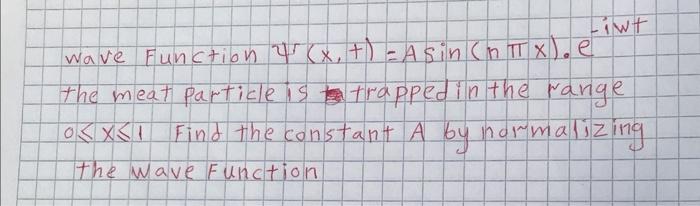 wave Function Ψ(x,t) = A sin(nπx).e^-iwt
the meat particle is trapped in the range
0≤x≤1 Find the constant A by normalizing
the wave Function